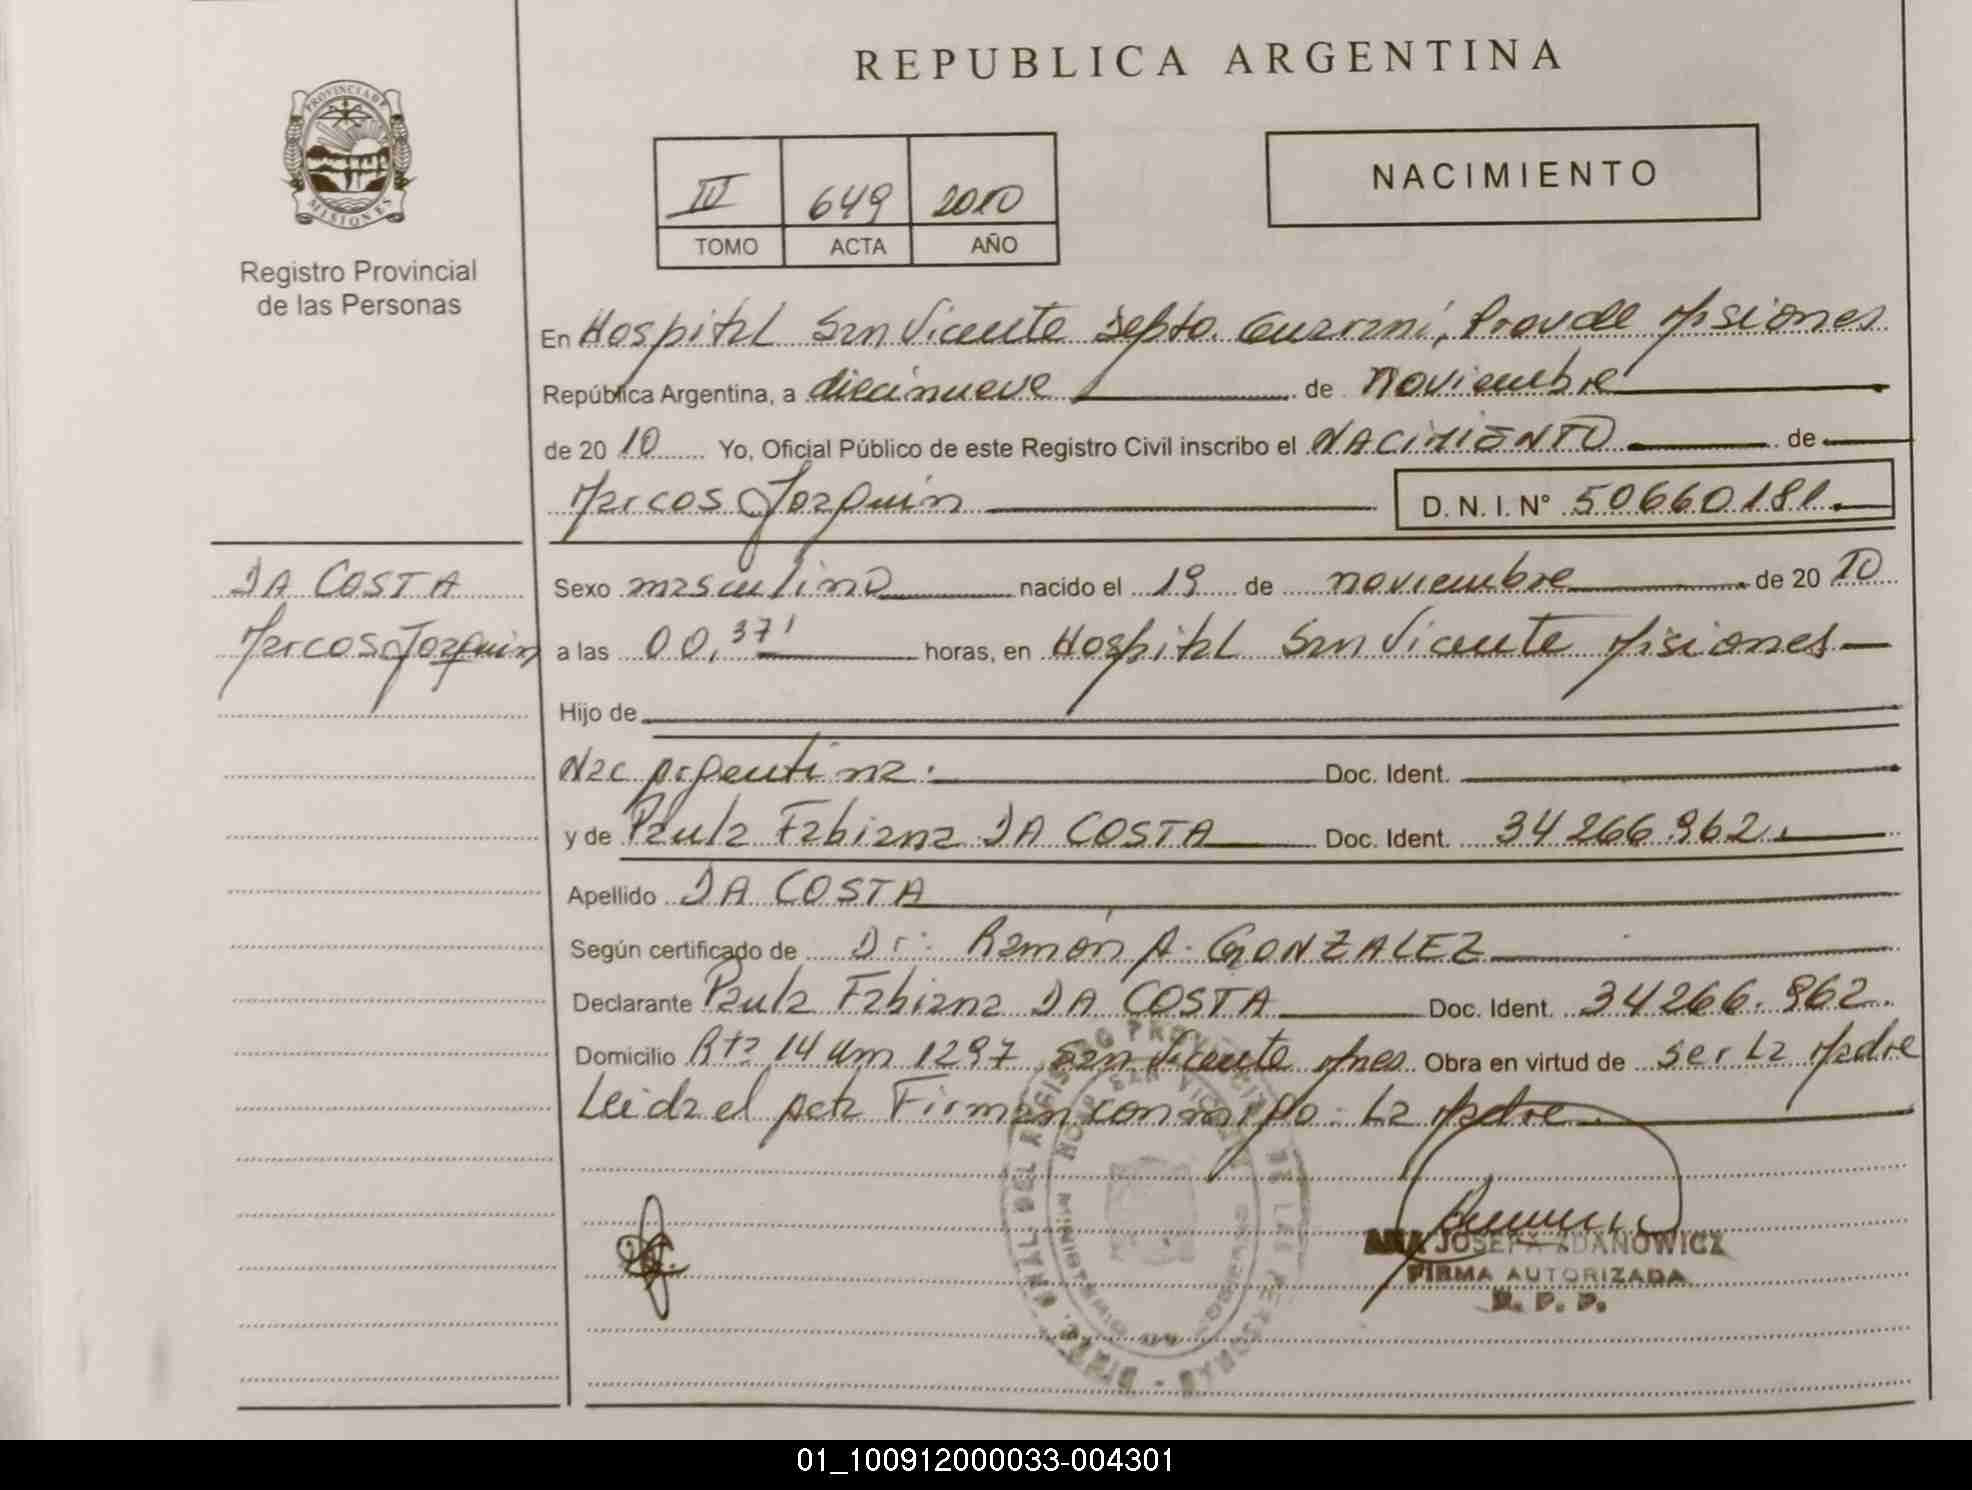 REPUBLICA ARGENTINA
PROVINCIA DE
MISIONES
Registro Provincial
de las Personas
III 649 2010
TOMO ACTA AÑO
NACIMIENTO
En Hospital San Vicente Depto. Guarani, Prov de Misiones
República Argentina, a diecinueve de noviembre
de 2010 Yo, Oficial Público de este Registro Civil inscribo el NACIMIENTO de
Marcos Joaquin D. N. I. N° 50660181.
DA COSTA
Marcos Joaquin
Sexo masculino nacido el 19 de noviembre de 2010
a las 00,37' horas, en Hospital San Vicente Misiones
Hijo de
Nac Argentina. Doc. Ident.
y de Paula Fabiana DA COSTA Doc. Ident. 34266.962.
Apellido DA COSTA
Según certificado de Dr: Ramón A. GONZALEZ
Declarante Paula Fabiana DA COSTA Doc. Ident. 34266.962.
Domicilio Rta 14 Km 1297 San Vicente Mnes Obra en virtud de ser La Madre
Leida el Acta Firman conmigo: La Madre.
ANA JOSEFA ZDANOWICZ
FIRMA AUTORIZADA
R. P. P.
01_100912000033-004301